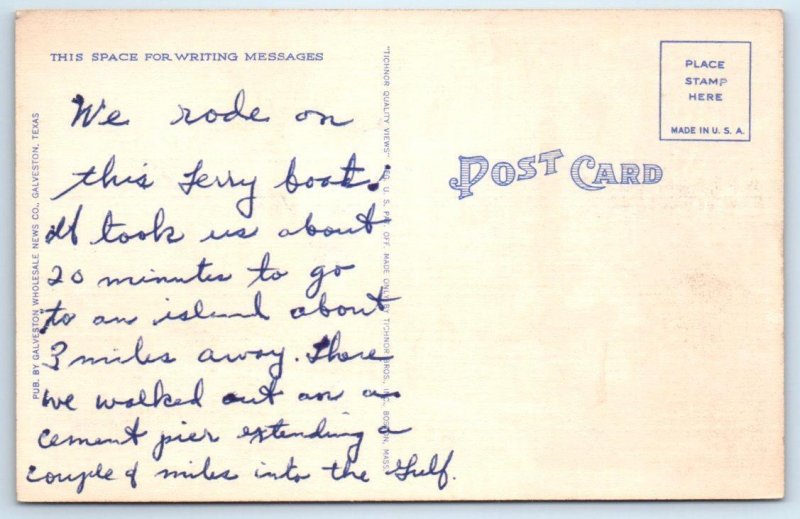 THIS SPACE FOR WRITING MESSAGES
We rode on
this ferry boat.
It took us about
20 minutes to go
to an island about
3 miles away. There
we walked out on a
cement pier extending a
couple of miles into the Gulf.
PUB. BY GALVESTON WHOLESALE NEWS CO., GALVESTON, TEXAS
"TICHNOR QUALITY VIEWS" REG. U. S. PAT. OFF. MADE ONLY BY TICHNOR BROS., INC., BOSTON, MASS.
POST CARD
PLACE
STAMP
HERE
MADE IN U. S. A.